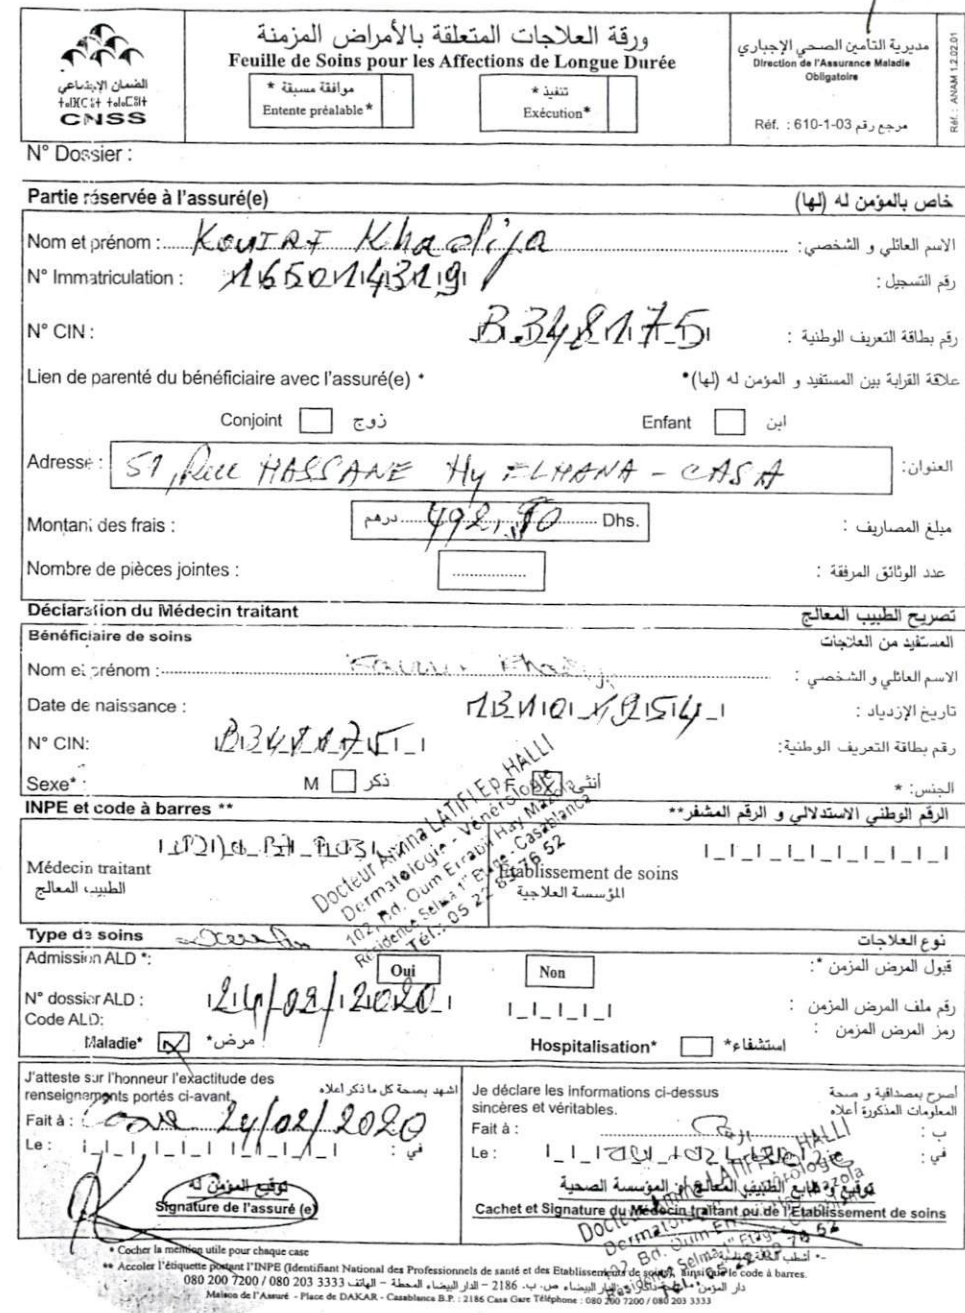 ورقة العلاجات المتعلقة بالأمراض المزمنة
Feuille de Soins pour les Affections de Longue Durée
الضمان الاجتماعي
ⵜⴰⵎⵙⵙⵓⵜ
CNSS
موافقة مسبقة *
Entente préalable *
تنفيذ *
Exécution*
مديرية التأمين الصحي الإجباري
Direction de l'Assurance Maladie
Obligatoire
Réf. : 610-1-03 مرجع رقم
Réf. : ANAM 1.2.02.01
N° Dossier :
Partie réservée à l'assuré(e) خاص بالمؤمن له (لها)
Nom et prénom : Kouiri Khadija الاسم العائلي و الشخصي :
N° Immatriculation : 165014319 رقم التسجيل :
N° CIN : B348175 رقم بطاقة التعريف الوطنية :
Lien de parenté du bénéficiaire avec l'assuré(e) * علاقة القرابة بين المستفيد و المؤمن له (لها)*
Conjoint زوج Enfant ابن
Adresse : 51, Rue HASSANE Hy ELHANA - CASA العنوان:
Montant des frais : درهم 492,80 Dhs. مبلغ المصاريف :
Nombre de pièces jointes : عدد الوثائق المرفقة :
Déclaration du Médecin traitant تصريح الطبيب المعالج
Bénéficiaire de soins المستفيد من العلاجات
Nom et prénom : الاسم العائلي و الشخصي :
Date de naissance : 13 10 1954 تاريخ الإزدياد :
N° CIN: B348175 رقم بطاقة التعريف الوطنية:
Sexe* : M ذكر F أنثى الجنس: *
INPE et code à barres ** الرقم الوطني الاستدلالي و الرقم المشفر**
Médecin traitant
الطبيب المعالج
Etablissement de soins
المؤسسة العلاجية
Docteur Amina LATIFI Ep. HALLI
Dermatologie - Vénérologie
102, Bd. Oum Errabii Hay Mazola
Résidence Selma 1" Etage - Casablanca
Tél.: 05 22 89 76 52
Type de soins نوع العلاجات
Admission ALD *: Oui Non قبول المرض المزمن *:
N° dossier ALD : 24/02/2020 رقم ملف المرض المزمن :
Code ALD: رمز المرض المزمن :
Maladie* مرض* Hospitalisation* استشفاء*
J'atteste sur l'honneur l'exactitude des
renseignements portés ci-avant. اشهد بصحة كل ما ذكر أعلاه
Fait à : Casa 24/02/2020
Le : في :
توقيع المؤمن له
Signature de l'assuré (e)
Je déclare les informations ci-dessus
sincères et véritables.
أصرح بمصداقية و صحة
المعلومات المذكورة أعلاه
Fait à : ب :
Le : في :
توقيع و طابع الطبيب المعالج أو المؤسسة الصحية
Cachet et Signature du Médecin traitant ou de l'Etablissement de soins
* Cocher la mention utile pour chaque case
** Accoler l'étiquette portant l'INPE (Identifiant National des Professionnels de santé et des Etablissements de soins), ainsi que le code à barres.
080 200 7200 / 080 203 3333 دار المؤمن - ساحة دكار - الدار البيضاء ص.ب. 2186 – الدار البيضاء المحطة – الهاتف
Maison de l'Assuré - Place de DAKAR - Casablanca B.P. : 2186 Casa Gare Téléphone : 080 200 7200 / 080 203 3333